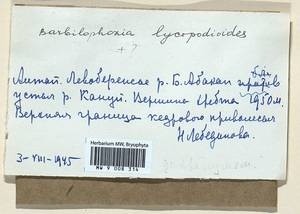 Barbilophozia lycopodioides
+ ?
Алтай. Левобережье р. Б. Абакан
устья р. Кануй. Вершина хребта 1950 м.
Верхняя граница кедрового криволесья
Н. Лебединова.
3-VIII-1945
Herbarium MW, Bryophyta
MW 9 008 314